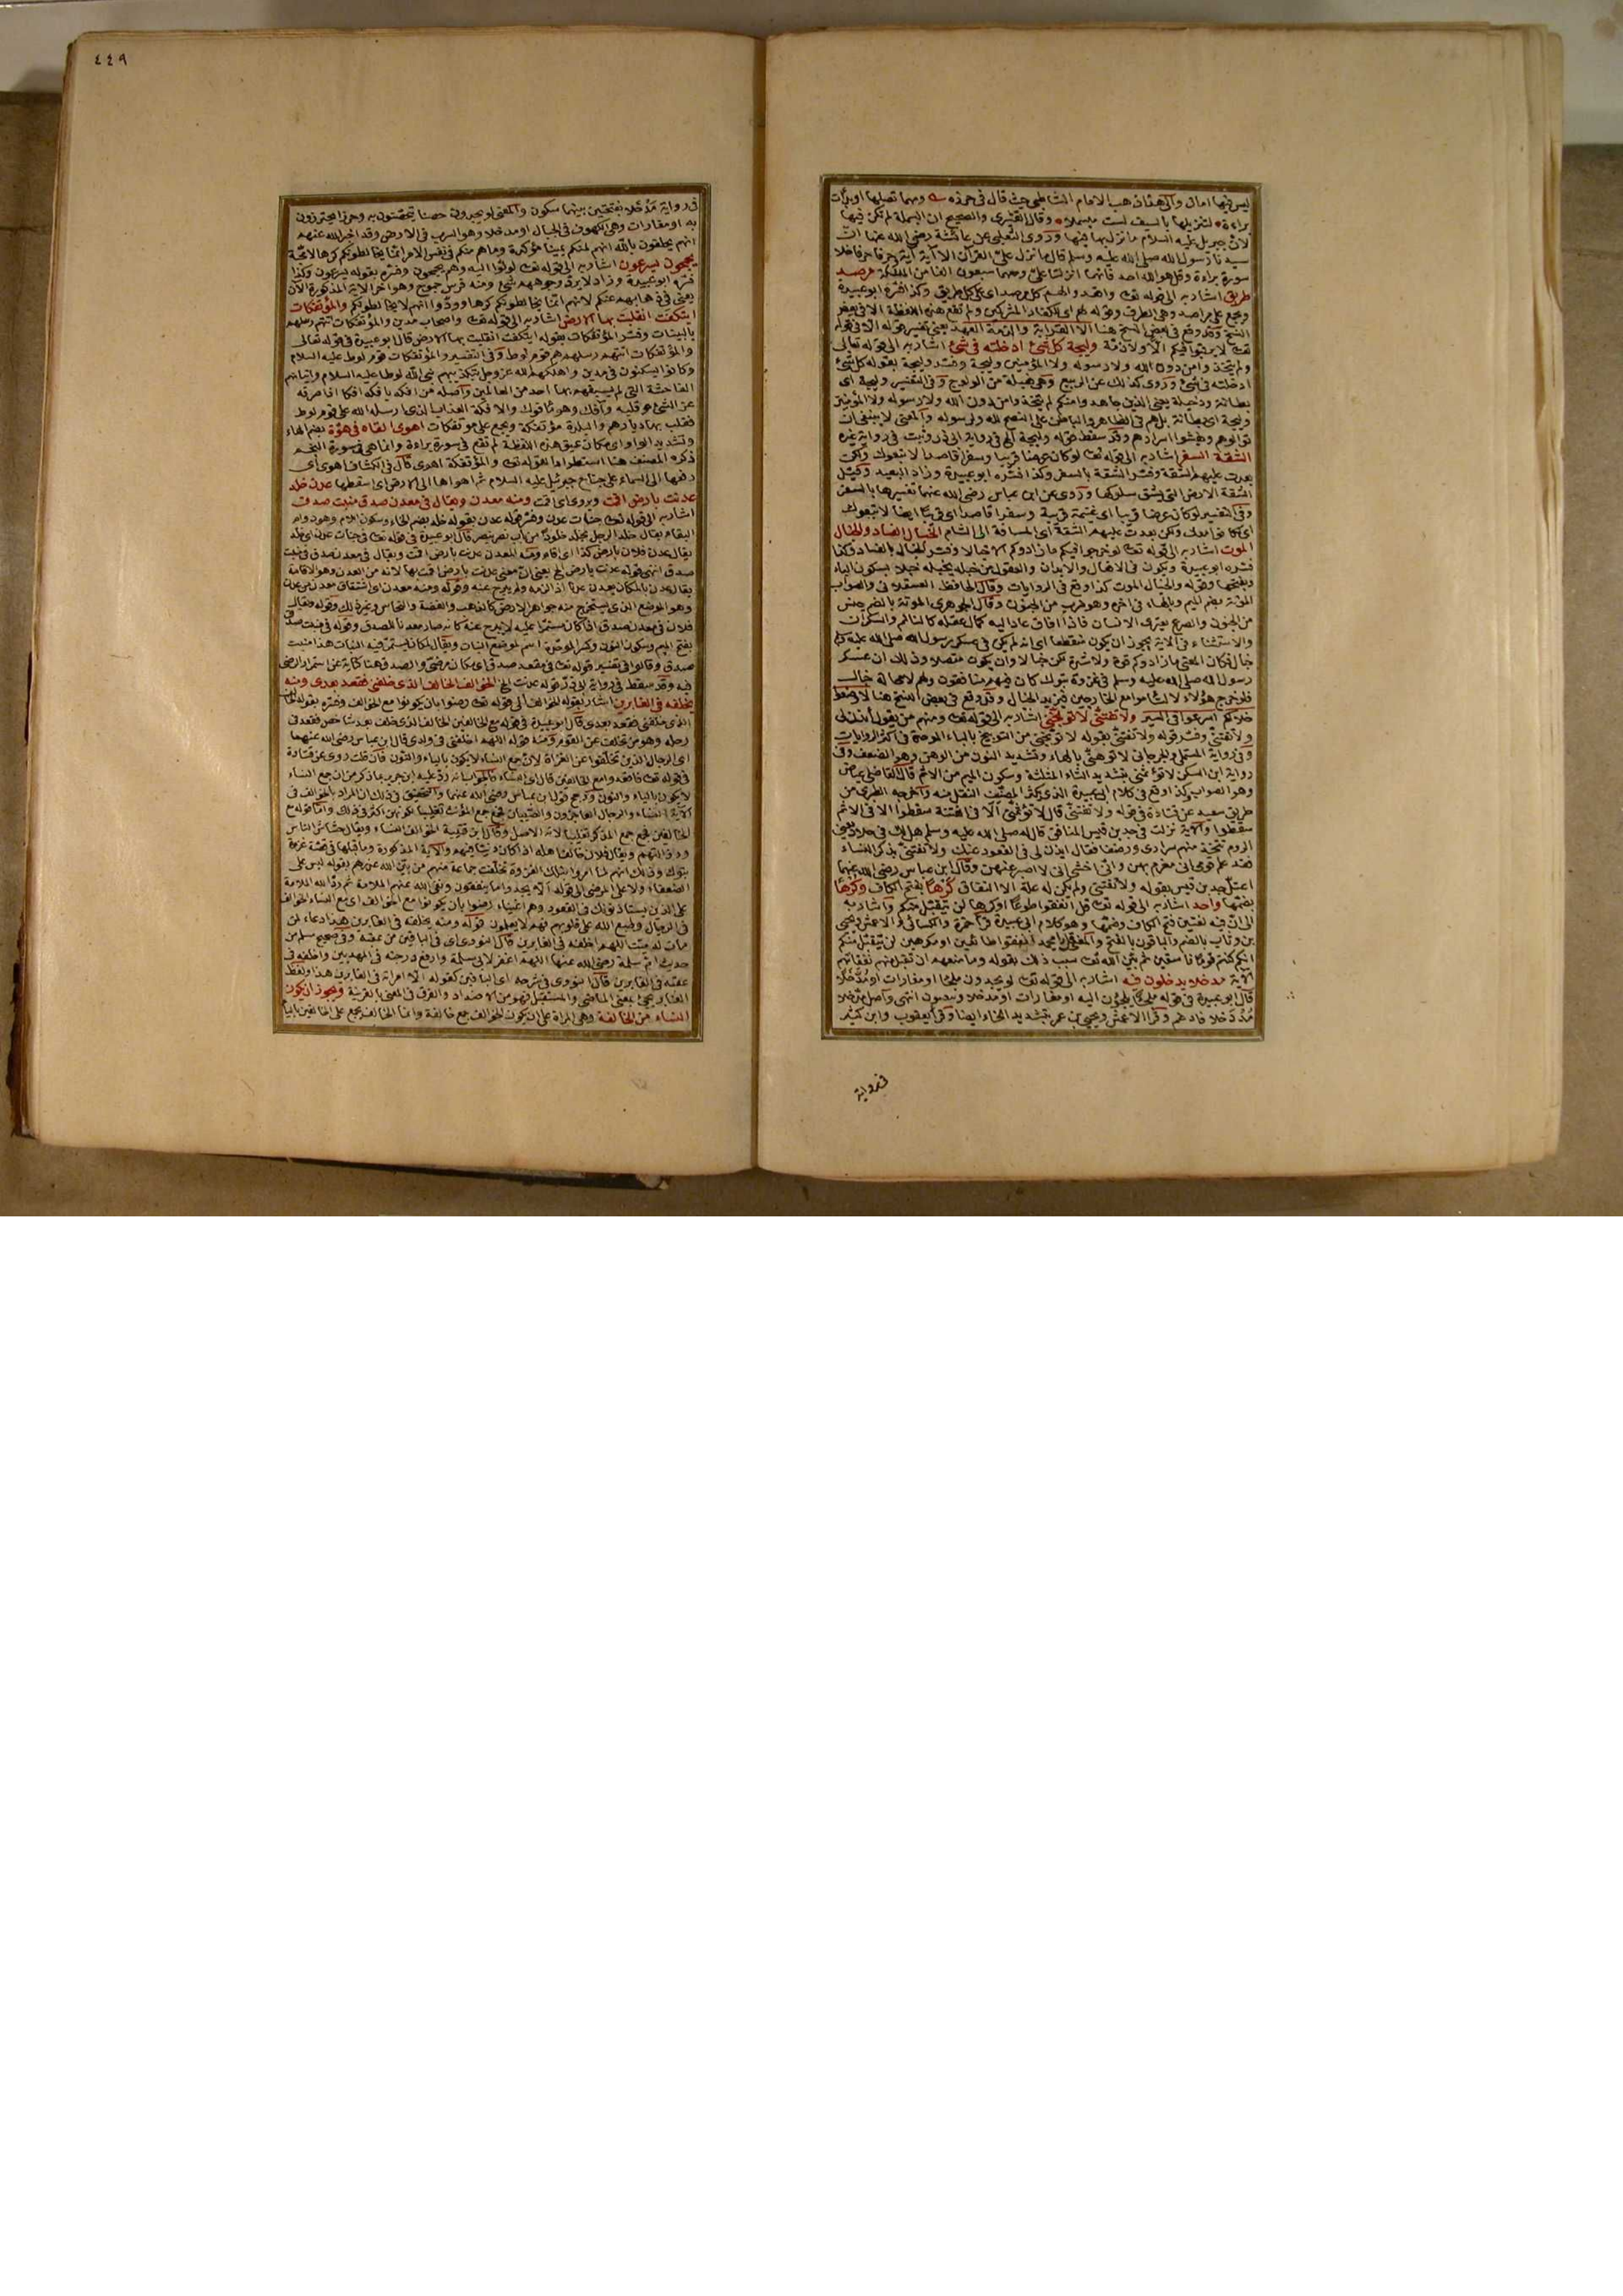 ليس فيها امان والى هذا ذهب الامام الشاطبى حيث قال فى حرزه ومهما تصلها او بدأت
براءة لتنزيلها بالسيف لست مبسملا وقال القشيرى والصحيح ان البسملة لم تكن فيها
لان جبريل عليه السلام ما نزل بها فيها وروى الثعلبى عن عائشة رضى الله عنها ان
رسول الله صلى الله عليه وسلم قال ما نزل على القرآن الا آية آية وحرفا حرفا خلا
سورة براءة وقل هو الله احد فانهما انزلتا على ومعهما سبعون الفا من الملائكة مرصد
طريق اشار به الى قوله تعـ واقعدوا لهم كل مرصد اى على كل طريق وكذا فسره ابو عبيدة
ويجمع على مراصد وهى الطرق وقوله لهم اى للكفار المشركين ولم تقع هذه اللفظة الا فى بعض
النسخ وقد وقع فى بعض النسخ هنا الا القرابة والذمة العهد يعنى تفسير قوله الا فى قوله
تعـ لا يرقبوا فيكم الا ولا ذمة وليجة كل شئ ادخلته فى شئ اشار به الى قوله تعالى
ولم يتخذوا من دون الله ولا رسوله ولا المؤمنين وليجة وفسر وليجة بقوله كل شئ
ادخلته فى شئ وروى كذلك عن الربيع وهى فعيلة من الولوج وفى التفسير وليجة اى
بطانة ودخيلة يعنى الذين جاهدوا منكم لم يتخذوا من دون الله ولا رسوله ولا المؤمنين
وليجة اى بطانة بل هم فى الظاهر والباطن على النصح لله ولرسوله والمعنى لا ينبغى ان
توالوهم وتفشوا اسرارهم وقد سقط قوله وليجة الخ فى رواية ابى ذر وثبت فى رواية غيره
الشقة السفر اشار به الى قوله تعـ لو كان عرضا قريبا وسفرا قاصدا لاتبعوك ولكن
بعدت عليهم الشقة وفسر الشقة بالسفر وكذا فسره ابو عبيدة وزاد البعيد وقيل
الشقة الارض التى يشق سلوكها وروى عن ابن عباس رضى الله عنهما تفسيرها بالسفر
وفى التفسير لو كان عرضا قريبا اى غنيمة قريبة وسفرا قاصدا اى قريبا ايضا لاتبعوك
اى كانوا معك ولكن بعدت عليهم الشقة اى المسافة الى الشام الخبال الفساد والخبال
الموت اشار به الى قوله تعـ لو خرجوا فيكم ما زادوكم الا خبالا وفسر الخبال بالفساد وكذا
فسره ابو عبيدة ويكون فى الافعال والابدان والعقول من خبله يخبله خبلا بسكون الباء
وبفتحها وقوله والخبال الموت كذا وقع فى الروايات وقال الحافظ العسقلانى والصواب
الموتة بضم الميم وبالهاء فى اخره وهو ضرب من الجنون وقال الجوهرى الموتة بالضم جنس
من الجنون والصرع يعترى الانسان فاذا افاق عاد اليه كمال عقله كالنائم والسكران
والاستثناء فى الاية يجوز ان يكون منقطعا اى انه لم يكن فى عسكر رسول الله صلى الله عليه وسلم
خبال فكان المعنى ما زادوكم قوة ولا شدة لكن خبالا وان يكون متصلا وذلك ان عسكر
رسول الله صلى الله عليه وسلم فى غزوة تبوك كان فيهم منافقون ولهم لا محالة خبال
فلو خرج هؤلاء لالتأموا مع الخارجين فيزيد الخبال وقد وقع فى بعض النسخ هنا لاوضعوا
خلالكم اسرعوا فى السير ولا تفتنى لا توبخنى اشار به الى قوله تعـ ومنهم من يقول ائذن لى
ولا تفتنى وفسر قوله ولا تفتنى بقوله لا توبخنى من التوبيخ بالباء الموحدة فى اكثر الروايات
وفى رواية المستملى والجرجانى لا توهنى بالهاء وتشديد النون من الوهن وهو الضعف وفى
رواية ابن السكن لا تؤثمنى بتشديد الثاء المثلثة وسكون الميم من الاثم قال القاضى عياض
وهو الصواب وكذا وقع فى كلام ابى عبيدة الذى يكثر المصنف النقل منه واخرجه الطبرى من
طريق سعيد عن قتادة فى قوله ولا تفتنى قال لا تؤثمنى الا فى الفتنة سقطوا الا فى الاثم
سقطوا والاية نزلت فى جد بن قيس المنافق قال له صلى الله عليه وسلم هل لك فى جلاد بنى
الروم تتخذ منهم سرارى ووصفا فقال ايذن لى فى القعود عنك ولا تفتنى بذكر النساء
فقد علم قومى انى مغرم بهن وانى اخشى انى لا اصبر عنهن وقال ابن عباس رضى الله عنهما
اعتل جد بن قيس بقوله ولا تفتنى ولم يكن له علة الا النفاق كرها بفتح الكاف وكرها
بضمها واحد اشار به الى قوله تعـ قل انفقوا طوعا او كرها لن يتقبل منكم واشار به
الى ان فيه لغتين فتح الكاف وضمها وهو كلام ابى عبيدة قرأ حمزة والكسائى والاعمش ويحيى
بن وثاب بالضم والباقون بالفتح والمعنى قل يا محمد انفقوا طائعين او مكرهين لن يتقبل منكم
انكم كنتم قوما فاسقين ثم بين الله تعـ سبب ذلك بقوله وما منعهم ان تقبل منهم نفقاتهم
الاية مدخلا يدخلون فيه اشار به الى قوله تعـ لو يجدون ملجأ او مغارات او مدخلا
قال ابو عبيدة فى قوله ملجأ يلجؤن اليه او مغارات او مدخلا يدخلون انتهى واصل مدخلا
مدتخلا فادغم وقرأ الاعمش ويحيى بن عمر بتشديد الخاء ايضا وقرأ يعقوب وابن كثير
فى رواية
٤٤٩
فى رواية مدخلا بفتحتين بينهما سكون والمعنى لو يجدون حصنا يتحصنون به وحرزا يحترزون
به او مغارات وهى الكهوف فى الجبال او مدخلا وهو السرب فى الارض وقد اخبر الله عنهم
انهم يحلفون بالله انهم لمنكم يمينا مؤكدة وما هم منكم فى نفس الامر انما يخالطونكم كرها لا محبة
يجمحون يسرعون اشار به الى قوله تعـ لولوا اليه وهم يجمحون وفسره بقوله يسرعون وكذا
فسره ابو عبيدة وزاد لا يرد وجوههم شئ ومنه فرس جموح وهو اخر الاية المذكورة الان
يعنى فى ذهابهم عنكم لانهم انما يخالطونكم كرها وودوا انهم لا يخالطونكم والمؤتفكات
ايتفكت انقلبت بها الارض اشار به الى قوله تعـ واصحاب مدين والمؤتفكات اتتهم رسلهم
بالبينات وفسر المؤتفكات بقوله ايتفكت انقلبت بها الارض قال ابو عبيدة فى قوله تعالى
والمؤتفكات اتتهم رسلهم هم قوم لوط وفى التفسير والمؤتفكات قوم لوط عليه السلام
وكانوا يسكنون فى مدين واهلكهم الله عز وجل بتكذيبهم نبى الله لوطا عليه السلام واتيانهم
الفاحشة التى لم يسبقهم بها احد من العالمين واصله من افكه يأفكه افكا اذا صرفه
عن الشئ وقلبه وافك وهو مأفوك والافكة العذاب الذى ارسله الله على قوم لوط
فقلب بها ديارهم والبلدة مؤتفكة ويجمع على مؤتفكات اهوى القاه فى هوة بضم الهاء
وتشديد الواو اى مكان عميق هذه اللفظة لم تقع فى سورة براءة وانما هى فى سورة النجم
ذكره المصنف هنا استطرادا لقوله تعـ والمؤتفكة اهوى قال فى الكشاف اهوى اى
رفعها الى السماء على جناح جبرئيل عليه السلام ثم اهواها الى الارض اى اسقطها عدن خلد
عدنت بارض اقمت ويروى اى اقمت ومنه معدن ويقال فى معدن صدق فى منبت صدق
اشار به الى قوله تعـ جنات عدن وفسر قوله عدن بقوله خلد بضم الخاء وسكون اللام وهو دوام
البقاء يقال خلد الرجل يخلد خلودا من باب نصر ينصر قال ابو عبيدة فى قوله تعـ فى جنات عدن اى خلد
يقال عدن فلان بارض كذا اى اقام ومنه المعدن عدنت بارض اقمت ويقال فى معدن صدق فى منبت
صدق انتهى قوله عدنت بارض الخ يعنى ان معنى عدنت بارض اقمت بها لانه من العدن وهو الاقامة
يقال عدن بالمكان يعدن عدنا اذا لزمه ولم يبرح عنه وقوله ومنه معدن اى اشتقاق معدن من عدن
وهو الموضع الذى يستخرج منه جواهر الارض كالذهب والفضة والنحاس وغير ذلك وقوله ويقال
فلان فى معدن صدق اذا كان مستمرا عليه لا يبرح عنه كانه صار معدنا للصدق وقوله فى منبت صدق
بفتح الميم وسكون النون وكسر الموحدة اسم لموضع النبات ويقال لمكان يستمر فيه النبات هذا منبت
صدق وقالوا فى تفسير قوله تعـ فى مقعد صدق اى مكان مرضى والصدق هنا كناية عن استمرار الرضى
فيه وقد سقط فى رواية ابى ذر قوله عدنت الخ الخوالف الخالف الذى خلفنى فقعد بعدى ومنه
يخلفه فى الغابرين اشار بقوله الخوالف الى قوله تعـ رضوا بان يكونوا مع الخوالف وفسره بقوله الخالف
الذى خلفنى فقعد بعدى قال ابو عبيدة فى قوله مع الخالفين الخالف الذى خلف بعد شاخص فقعد فى
رحله وهو من تخلف عن القوم ومنه قوله اللهم اخلفنى فى ولدى قال ابن عباس رضى الله عنهما
اى الرجال الذين تخلفوا عن الغزاة لان جمع النساء لا يكون بالياء والنون فان قلت روى عن قتادة
فى قوله تعـ فاقعدوا مع الخالفين قال اى النساء فالجواب انه رد عليه ابن جرير بما ذكر من ان جمع النساء
لا يكون بالياء والنون ورجح قول ابن عباس رضى الله عنهما والتحقيق فى ذلك ان المراد بالخوالف فى
الاية النساء والرجال العاجزون والصبيان فجمع جمع المؤنث تغليبا لكونهن اكثر فى ذلك واما قوله مع
الخالفين فجمع جمع المذكر تغليبا لانه الاصل وقال ابن قتيبة الخوالف النساء ويقال خساس الناس
ورذالتهم ويقال فلان خالفة اهله اذا كان دينا فيهم والاية المذكورة وما قبلها فى قصة غزوة
تبوك وذلك انهم لما امروا بتلك الغزوة تخلفت جماعة منهم من بين الله عذرهم بقوله ليس على
الضعفاء ولا على المرضى الى قوله الا يجدوا ما ينفقون ونفى الله عنهم الملامة ثم رد الله الملامة
على الذين يستأذنونك فى القعود وهم اغنياء رضوا بان يكونوا مع الخوالف اى مع النساء الخوالف
فى الرحال وطبع الله على قلوبهم فهم لا يعلمون قوله ومنه يخلفه فى الغابرين هذا دعاء لمن
مات له ميت اللهم اخلفه فى الغابرين قال النووى اى فى الباقين من عقبه وفى صحيح مسلم من
حديث ام سلمة رضى الله عنها اللهم اغفر لابى سلمة وارفع درجته فى المهديين واخلفه فى
عقبه فى الغابرين قال النووى فى شرحه اى الباقين كقوله الا امرأته فى الغابرين هذا ولفظ
الغابر يجئ بمعنى الماضى والمستقبل فهو من الاضداد والفرق فى المعنى بالقرينة ويجوز ان يكون
النساء من الخالفة وهى المرأة على ان يكون الخوالف جمع خالفة وانما الخالف يجمع على الخالفين بالياء